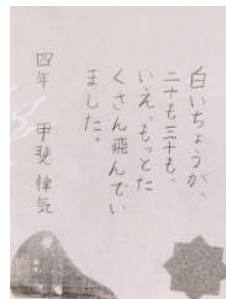 白いちょうが、
二十も三十も、
いえ、もっとた
くさん飛んでい
ました。
四年 甲斐 律気